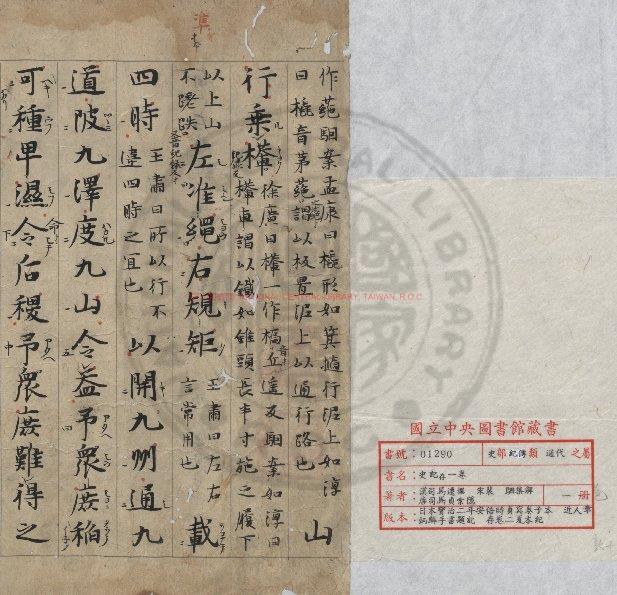 準
作蕝駰案孟康曰橇形如箕擿行泥上如淳
曰橇音茅蕝謂以板置泥上以通行路也 山
行乗檋 徐廣曰檋一作橋音丘遥反駰案如淳曰
檋車謂以鐵如錐頭長半寸施之履下
以上山
不蹉跌 左准繩右規矩 王肅曰左右
言常用也 載
四時 王肅曰所以行不
違四時之宜也 以開九州通九
道陂九澤度九山令益予衆庶稲
可種早濕令后稷予衆庶難得之
NATIONAL CENTRAL LIBRARY, TAIWAN, R.O.C
國立中央圖書館藏書
書號：01290 史部紀傳類 通代 之屬
書名：史記存一卷
著者：漢司馬遷撰 宋裴駰集解
唐司馬貞索隱 一冊
版本：日本寶治二年安倍時貞寫卷子本 近人章
手書題記 存卷二夏本紀